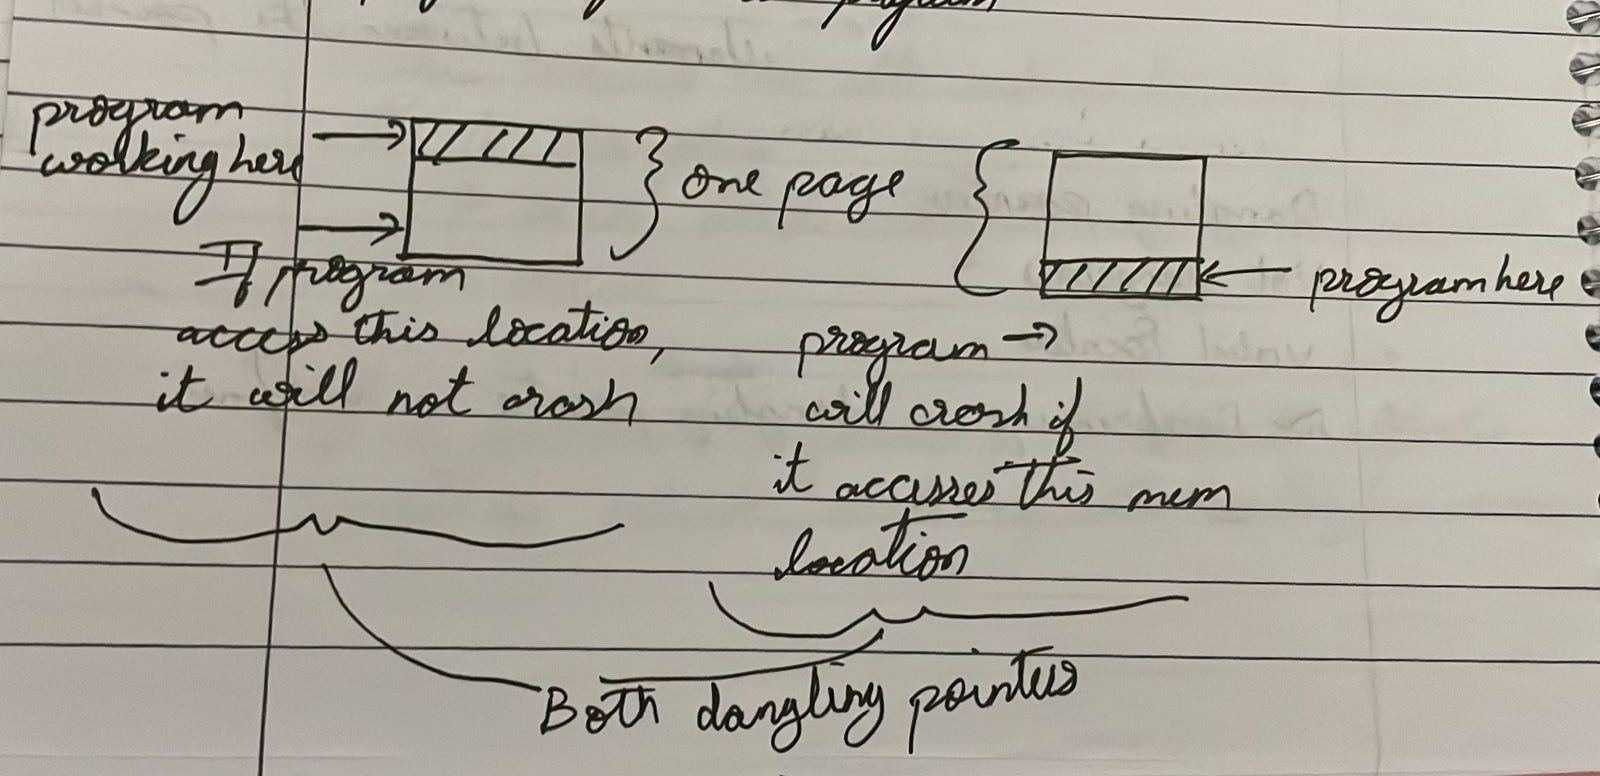 program
program
working here
one page
If program
access this location,
it will not crash
program here
program →
will crash if
it accesses this mem
location
Both dangling pointers